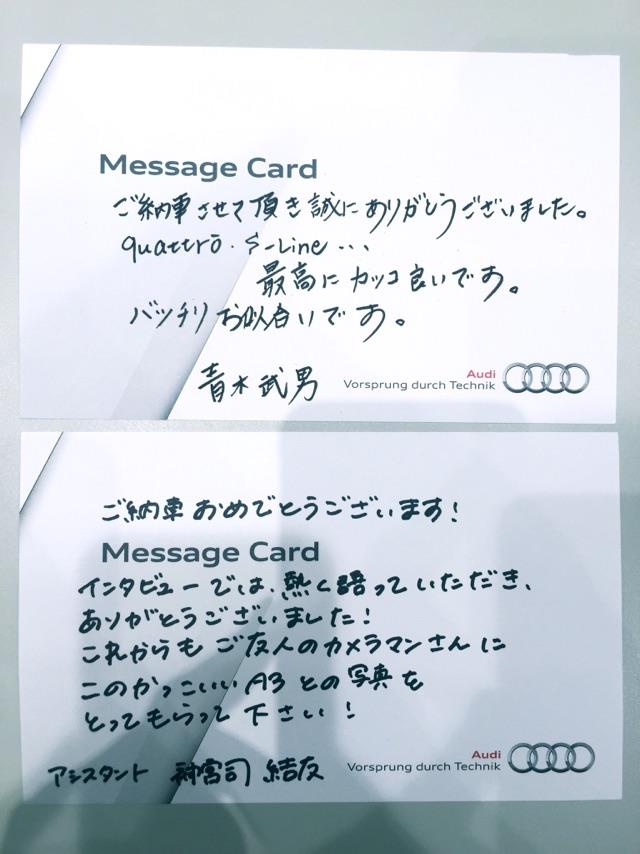 Message Card
ご納車させて頂き誠にありがとうございました。
quattro・S-Line・・・
最高にカッコ良いです。
バッチリお似合いです。
青木武男
Audi
Vorsprung durch Technik
ご納車おめでとうございます!
Message Card
インタビューでは、熱く語っていただき、
ありがとうございました!
これからもご友人のカメラマンさんに
このかっこいいA3との写真を
とってもらって下さい!
アシスタント 神宮司 結友
Audi
Vorsprung durch Technik